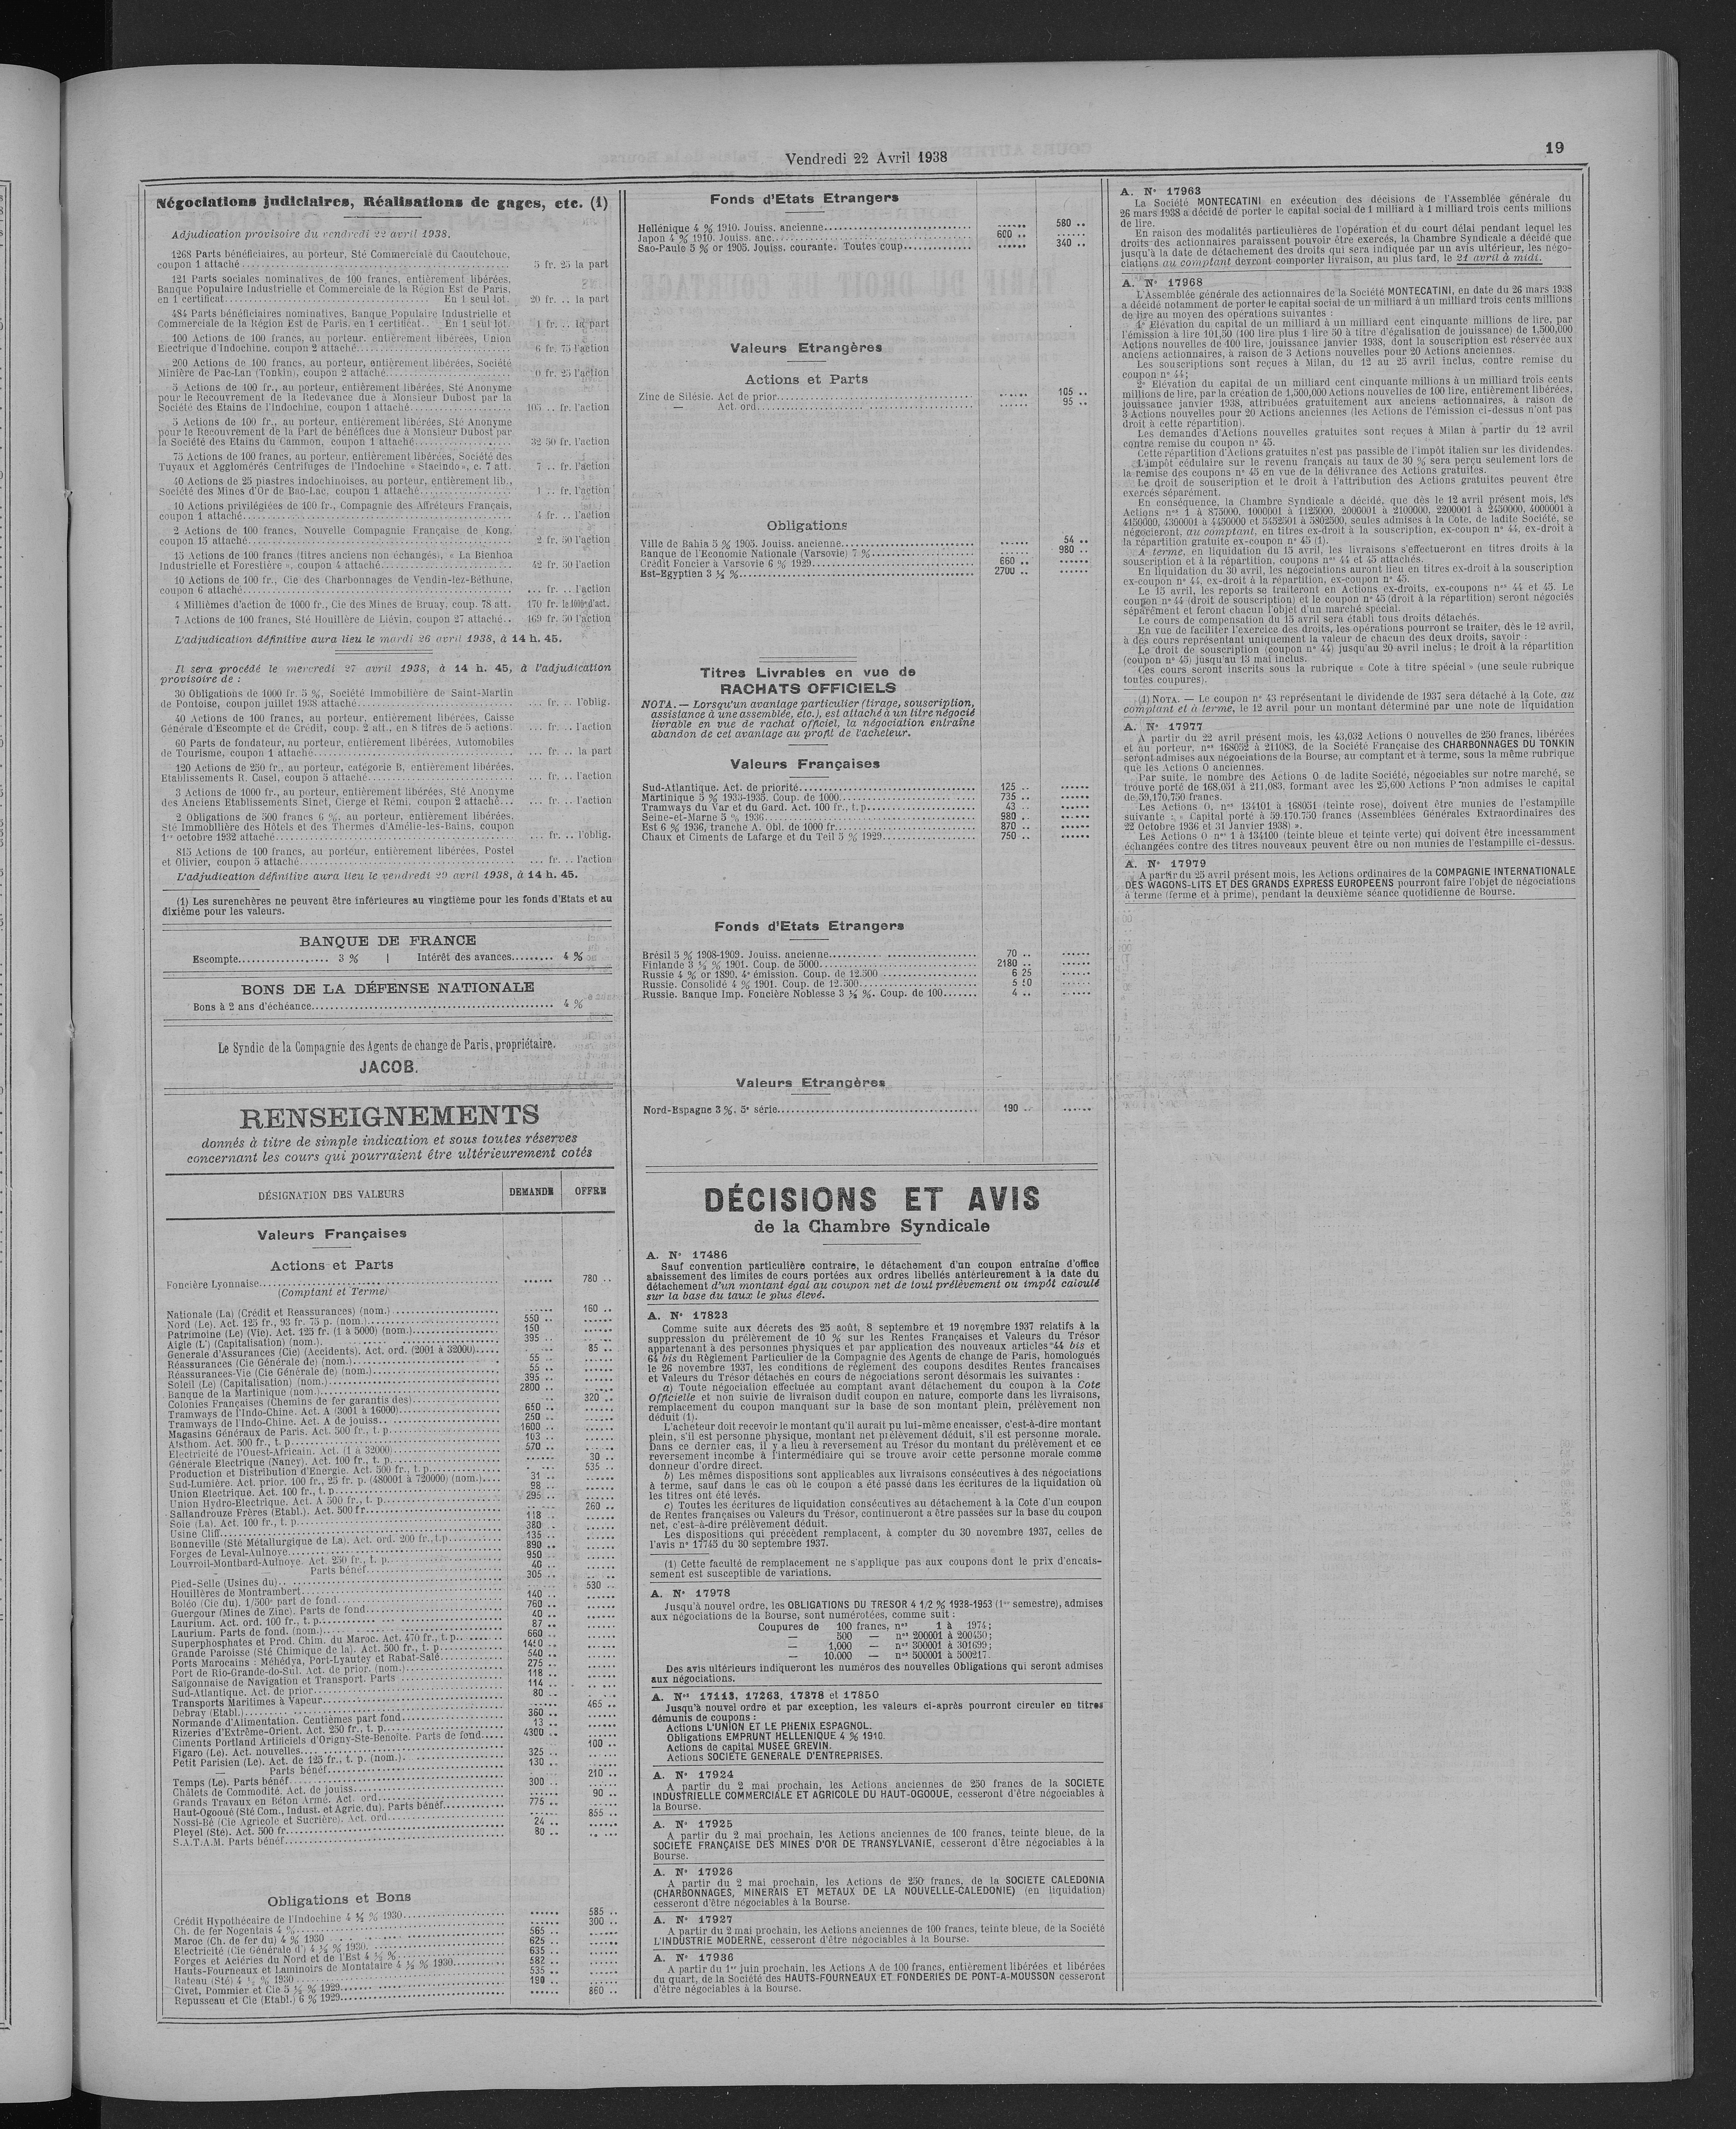 Vendredi 22 Avril 1938
19
Négociations judiciaires, Réalisations de gages, etc. (1)
Adjudication provisoire du vendredi 22 avril 1938.
1268 Parts bénéficiaires, au porteur, Sté Commerciale du Caoutchouc,
coupon 1 attaché.......... 5 fr. 25 la part
121 Parts sociales nominatives de 100 francs, entièrement libérées,
Banque Populaire Industrielle et Commerciale de la Région Est de Paris,
en 1 certificat.......... En 1 seul lot. 20 fr. .. la part
484 Parts bénéficiaires nominatives, Banque Populaire Industrielle et
Commerciale de la Région Est de Paris, en 1 certificat.. En 1 seul lot. 1 fr. .. la part
100 Actions de 100 francs, au porteur, entièrement libérées, Union
Electrique d'Indochine, coupon 2 attaché.......... 6 fr. 75 l'action
200 Actions de 100 francs, au porteur, entièrement libérées, Société
Minière de Pac-Lan (Tonkin), coupon 2 attaché.......... 0 fr. 25 l'action
5 Actions de 100 fr., au porteur, entièrement libérées, Sté Anonyme
pour le Recouvrement de la Redevance due à Monsieur Dubost par la
Société des Etains de l'Indochine, coupon 1 attaché.......... 105 .. fr. l'action
5 Actions de 100 fr., au porteur, entièrement libérées, Sté Anonyme
pour le Recouvrement de la Part de bénéfices due à Monsieur Dubost par
la Société des Etains du Cammon, coupon 1 attaché.......... 32 50 fr. l'action
75 Actions de 100 francs, au porteur, entièrement libérées, Société des
Tuyaux et Agglomérés Centrifuges de l'Indochine « Stacindo », c. 7 att. 7 .. fr. l'action
40 Actions de 25 piastres indochinoises, au porteur, entièrement lib.,
Société des Mines d'Or de Bao-Lac, coupon 1 attaché.......... 1 .. fr. l'action
10 Actions privilégiées de 100 fr., Compagnie des Affréteurs Français,
coupon 1 attaché.......... 4 fr. .. l'action
2 Actions de 100 francs, Nouvelle Compagnie Française de Kong,
coupon 15 attaché.......... 2 fr. 50 l'action
15 Actions de 100 francs (titres anciens non échangés), « La Bienhoa
Industrielle et Forestière », coupon 4 attaché.......... 42 fr. 50 l'action
10 Actions de 100 fr., Cie des Charbonnages de Vendin-lez-Béthune,
coupon 6 attaché.......... ... fr. .. l'action
4 Millièmes d'action de 1000 fr., Cie des Mines de Bruay, coup. 78 att. 170 fr. le 1000e d'act.
7 Actions de 100 francs, Sté Houillère de Liévin, coupon 27 attaché.. 169 fr. 50 l'action
L'adjudication définitive aura lieu le mardi 26 avril 1938, à 14 h. 45.
Il sera procédé le mercredi 27 avril 1938, à 14 h. 45, à l'adjudication
provisoire de :
30 Obligations de 1000 fr. 5 %, Société Immobilière de Saint-Martin
de Pontoise, coupon juillet 1938 attaché.......... ... fr. .. l'oblig.
40 Actions de 100 francs, au porteur, entièrement libérées, Caisse
Générale d'Escompte et de Crédit, coup. 2 att., en 8 titres de 5 actions. ... fr. .. l'action
60 Parts de fondateur, au porteur, entièrement libérées, Automobiles
de Tourisme, coupon 1 attaché.......... ... fr. .. la part
120 Actions de 250 fr., au porteur, catégorie B, entièrement libérées,
Etablissements R. Casel, coupon 5 attaché.......... ... fr. .. l'action
3 Actions de 1000 fr., au porteur, entièrement libérées, Sté Anonyme
des Anciens Etablissements Sinet, Cierge et Rémi, coupon 2 attaché... ... fr. .. l'action
2 Obligations de 500 francs 6 %, au porteur, entièrement libérées,
Sté Immobilière des Hôtels et des Thermes d'Amélie-les-Bains, coupon
1er octobre 1932 attaché.......... ... fr. .. l'oblig.
815 Actions de 100 francs, au porteur, entièrement libérées, Postel
et Olivier, coupon 5 attaché.......... ... fr. .. l'action
L'adjudication définitive aura lieu le vendredi 29 avril 1938, à 14 h. 45.
(1) Les surenchères ne peuvent être inférieures au vingtième pour les fonds d'Etats et au
dixième pour les valeurs.
BANQUE DE FRANCE
Escompte.......... 3 % | Intérêt des avances......... 4 %
BONS DE LA DÉFENSE NATIONALE
Bons à 2 ans d'échéance.......... 4 %
Le Syndic de la Compagnie des Agents de change de Paris, propriétaire.
JACOB.
RENSEIGNEMENTS
donnés à titre de simple indication et sous toutes réserves
concernant les cours qui pourraient être ultérieurement cotés
DÉSIGNATION DES VALEURS DEMANDE OFFRE
Valeurs Françaises
Actions et Parts
Foncière Lyonnaise.......... ...... 780 ..
(Comptant et Terme)
Nationale (La) (Crédit et Reassurances) (nom.).......... ...... 160 ..
Nord (Le). Act. 125 fr., 93 fr. 75 p. (nom.).......... 550 .. ......
Patrimoine (Le) (Vie). Act. 125 fr. (1 à 5000) (nom.).......... 150 ......
Aigle (L') (Capitalisation) (nom.).......... 395 .. ......
Generale d'Assurances (Cie) (Accidents). Act. ord. (2001 à 32000)..... ...... 85 ..
Réassurances (Cie Générale de) (nom.).......... 55 .. ......
Réassurances-Vie (Cie Générale de) (nom.).......... 55 .. ......
Soleil (Le) (Capitalisation) (nom.).......... 395 .. ......
Banque de la Martinique (nom.).......... 2800 .. ......
Colonies Françaises (Chemins de fer garantis des).......... ...... 320 ..
Tramways de l'Indo-Chine. Act. A (3001 à 16000).......... 650 .. ......
Tramways de l'Indo-Chine. Act. A de jouiss.......... 250 .. ......
Magasins Généraux de Paris. Act. 500 fr., t. p.......... 1600 .. ......
Alsthom. Act. 500 fr., t. p.......... 103 .. ......
Electricité de l'Ouest-Africain. Act. (1 à 32000).......... 570 .. ......
Générale Electrique (Nancy). Act. 100 fr., t. p.......... ...... 30 ..
Production et Distribution d'Energie. Act. 500 fr., t. p.......... ...... 535 ..
Sud-Lumière. Act. prior. 100 fr., 25 fr. p. (480001 à 720000) (nom.).... 31 .. ......
Union Electrique. Act. 100 fr., t. p.......... 98 .. ......
Union Hydro-Electrique. Act. A 500 fr., t. p.......... 295 .. ......
Sallandrouze Frères (Etabl.). Act. 500 fr.......... ...... 260 ..
Soie (La). Act. 100 fr., t. p.......... 118 .. ......
Usine Cliff.......... 380 .. ......
Bonneville (Sté Métallurgique de La). Act. ord. 200 fr., t.p.......... 135 .. ......
Forges de Leval-Aulnoye.......... 890 .. ......
Louvroil-Montbard-Aulnoye. Act. 250 fr., t. p.......... 950 .. ......
— Parts bénéf.......... 40 .. ......
Pied-Selle (Usines du).......... 305 .. ......
Houillères de Montrambert.......... ...... 530 ..
Boléo (Cie du). 1/500e part de fond.......... 140 .. ......
Guergour (Mines de Zinc). Parts de fond.......... 760 .. ......
Laurium. Act. ord. 100 fr., t. p.......... 40 .. ......
Laurium. Parts de fond. (nom.).......... 87 .. ......
Superphosphates et Prod. Chim. du Maroc. Act. 470 fr., t. p.......... 660 .. ......
Grande Paroisse (Sté Chimique de la). Act. 500 fr., t. p.......... ......
Ports Marocains : Méhédya, Port-Lyautey et Rabat-Salé.......... 540 .. ......
Port de Rio-Grande-do-Sul. Act. de prior. (nom.).......... 275 .. ......
Saïgonnaise de Navigation et Transport. Parts.......... 118 .. ......
Sud-Atlantique. Act. de prior.......... 114 .. ......
Transports Maritimes à Vapeur.......... 80 .. ......
Debray (Etabl.).......... ...... 465 ..
Normande d'Alimentation. Centièmes part fond.......... 360 .. ......
Rizeries d'Extrême-Orient. Act. 250 fr., t. p.......... 13 .. ......
Ciments Portland Artificiels d'Origny-Ste-Benoîte. Parts de fond..... 4300 .. ......
Figaro (Le). Act. nouvelles.......... ...... 100 ..
Petit Parisien (Le). Act. de 125 fr., t. p. (nom.).......... 325 .. ......
— Parts bénéf.......... 130 .. ......
Temps (Le). Parts bénéf.......... ...... 210 ..
Châlets de Commodité. Act. de jouiss.......... 300 .. ......
Grands Travaux en Béton Armé. Act. ord.......... ...... 90 ..
Haut-Ogooué (Sté Com., Indust. et Agric. du). Parts bénéf.......... 775 .. ......
Nossi-Bé (Cie Agricole et Sucrière). Act. ord.......... ...... 855 ..
Pleyel (Sté). Act. 500 fr.......... 24 .. ......
S.A.T.A.M. Parts bénéf.......... 80 .. ......
Obligations et Bons
Crédit Hypothécaire de l'Indochine 4 ½ % 1930.......... ...... 585 ..
Ch. de fer Nogentais 4 %.......... ...... 300 ..
Maroc (Ch. de fer du) 4 % 1930.......... 565 .. ......
Electricité (Cie Générale d') 4 ½ % 1930.......... 625 .. ......
Forges et Aciéries du Nord et de l'Est 4 ½ %.......... 635 .. ......
Hauts-Fourneaux et Laminoirs de Montataire 4 ½ % 1930.......... 582 .. ......
Rateau (Sté) 4 ½ % 1930.......... 535 .. ......
Civet, Pommier et Cie 5 ½ % 1929.......... 190 .. ......
Repusseau et Cie (Etabl.) 6 % 1929.......... ...... 860 ..
Fonds d'Etats Etrangers
Hellénique 4 % 1910. Jouiss. ancienne.......... ...... 580 ..
Japon 4 % 1910. Jouiss. anc.......... 600 .. ......
Sao-Paulo 5 % or 1905. Jouiss. courante. Toutes coup.......... ...... 340 ..
Valeurs Etrangères
Actions et Parts
Zinc de Silésie. Act de prior.......... ...... 105 ..
— Act. ord.......... ...... 95 ..
Obligations
Ville de Bahia 5 % 1905. Jouiss. ancienne.......... ...... 54 ..
Banque de l'Economie Nationale (Varsovie) 7 %.......... ...... 980 ..
Crédit Foncier à Varsovie 6 % 1929.......... 660 .. ......
Est-Egyptien 3 ½ %.......... 2700 .. ......
Titres Livrables en vue de
RACHATS OFFICIELS
NOTA. — Lorsqu'un avantage particulier (tirage, souscription,
assistance à une assemblée, etc.), est attaché à un titre négocié
livrable en vue de rachat officiel, la négociation entraîne
abandon de cet avantage au profit de l'acheteur.
Valeurs Françaises
Sud-Atlantique. Act. de priorité.......... 125 .. ......
Martinique 5 % 1933-1935. Coup. de 1000.......... 735 .. ......
Tramways du Var et du Gard. Act. 100 fr., t. p.......... 43 .. ......
Seine-et-Marne 5 % 1936.......... 980 .. ......
Est 6 % 1936, tranche A. Obl. de 1000 fr.......... 870 .. ......
Chaux et Ciments de Lafarge et du Teil 5 % 1929.......... 750 .. ......
Fonds d'Etats Etrangers
Brésil 5 % 1908-1909. Jouiss. ancienne.......... 70 .. ......
Finlande 3 ½ % 1901. Coup. de 5000.......... 2180 .. ......
Russie 4 % or 1890, 4e émission. Coup. de 12.500.......... 6 25 ......
Russie. Consolidé 4 % 1901. Coup. de 12.500.......... 5 50 ......
Russie. Banque Imp. Foncière Noblesse 3 ½ %. Coup. de 100....... 4 .. ......
Valeurs Etrangères
Nord-Espagne 3 %, 5e série.......... 190 .. ......
DÉCISIONS ET AVIS
de la Chambre Syndicale
A. N° 17486
Sauf convention particulière contraire, le détachement d'un coupon entraîne d'office
abaissement des limites de cours portées aux ordres libellés antérieurement à la date du
détachement d'un montant égal au coupon net de tout prélèvement ou impôt calculé
sur la base du taux le plus élevé.
A. N° 17823
Comme suite aux décrets des 25 août, 8 septembre et 19 novembre 1937 relatifs à la
suppression du prélèvement de 10 % sur les Rentes Françaises et Valeurs du Trésor
appartenant à des personnes physiques et par application des nouveaux articles 44 bis et
64 bis du Règlement Particulier de la Compagnie des Agents de change de Paris, homologués
le 26 novembre 1937, les conditions de règlement des coupons desdites Rentes françaises
et Valeurs du Trésor détachés en cours de négociations seront désormais les suivantes :
a) Toute négociation effectuée au comptant avant détachement du coupon à la Cote
Officielle et non suivie de livraison dudit coupon en nature, comporte dans les livraisons,
remplacement du coupon manquant sur la base de son montant plein, prélèvement non
déduit (1).
L'acheteur doit recevoir le montant qu'il aurait pu lui-même encaisser, c'est-à-dire montant
plein, s'il est personne physique, montant net prélèvement déduit, s'il est personne morale.
Dans ce dernier cas, il y a lieu à reversement au Trésor du montant du prélèvement et ce
reversement incombe à l'intermédiaire qui se trouve avoir cette personne morale comme
donneur d'ordre direct.
b) Les mêmes dispositions sont applicables aux livraisons consécutives à des négociations
à terme, sauf dans le cas où le coupon a été passé dans les écritures de la liquidation où
les titres ont été levés.
c) Toutes les écritures de liquidation consécutives au détachement à la Cote d'un coupon
de Rentes françaises ou Valeurs du Trésor, continueront à être passées sur la base du coupon
net, c'est-à-dire prélèvement déduit.
Les dispositions qui précèdent remplacent, à compter du 30 novembre 1937, celles de
l'avis n° 17745 du 30 septembre 1937.
(1) Cette faculté de remplacement ne s'applique pas aux coupons dont le prix d'encais-
sement est susceptible de variations.
A. N° 17978
Jusqu'à nouvel ordre, les OBLIGATIONS DU TRESOR 4 1/2 % 1938-1953 (1er semestre), admises
aux négociations de la Bourse, sont numérotées, comme suit :
Coupures de 100 francs, nos 1 à 1974 ;
— 500 — nos 200001 à 200450 ;
— 1,000 — nos 300001 à 301699 ;
— 10.000 — nos 500001 à 500217.
Des avis ultérieurs indiqueront les numéros des nouvelles Obligations qui seront admises
aux négociations.
A. Nos 17113, 17263, 17378 et 17850
Jusqu'à nouvel ordre et par exception, les valeurs ci-après pourront circuler en titres
démunis de coupons :
Actions L'UNION ET LE PHENIX ESPAGNOL.
Obligations EMPRUNT HELLENIQUE 4 % 1910.
Actions de capital MUSEE GREVIN.
Actions SOCIETE GENERALE D'ENTREPRISES.
A. N° 17924
A partir du 2 mai prochain, les Actions anciennes de 250 francs de la SOCIETE
INDUSTRIELLE COMMERCIALE ET AGRICOLE DU HAUT-OGOOUE, cesseront d'être négociables à
la Bourse.
A. N° 17925
A partir du 2 mai prochain, les Actions anciennes de 100 francs, teinte bleue, de la
SOCIETE FRANÇAISE DES MINES D'OR DE TRANSYLVANIE, cesseront d'être négociables à la
Bourse.
A. N° 17926
A partir du 2 mai prochain, les Actions de 250 francs, de la SOCIETE CALEDONIA
(CHARBONNAGES, MINERAIS ET METAUX DE LA NOUVELLE-CALEDONIE) (en liquidation)
cesseront d'être négociables à la Bourse.
A. N° 17927
A partir du 2 mai prochain, les Actions anciennes de 100 francs, teinte bleue, de la Société
L'INDUSTRIE MODERNE, cesseront d'être négociables à la Bourse.
A. N° 17936
A partir du 1er juin prochain, les Actions A de 100 francs, entièrement libérées et libérées
du quart, de la Société des HAUTS-FOURNEAUX ET FONDERIES DE PONT-A-MOUSSON cesseront
d'être négociables à la Bourse.
A. N° 17963
La Société MONTECATINI en exécution des décisions de l'Assemblée générale du
26 mars 1938 a décidé de porter le capital social de 1 milliard à 1 milliard trois cents millions
de lire.
En raison des modalités particulières de l'opération et du court délai pendant lequel les
droits des actionnaires paraissent pouvoir être exercés, la Chambre Syndicale a décidé que
jusqu'à la date de détachement des droits qui sera indiquée par un avis ultérieur, les négo-
ciations au comptant devront comporter livraison, au plus tard, le 21 avril à midi.
A. N° 17968
L'Assemblée générale des actionnaires de la Société MONTECATINI, en date du 26 mars 1938
a décidé notamment de porter le capital social de un milliard à un milliard trois cents millions
de lire au moyen des opérations suivantes :
1° Elévation du capital de un milliard à un milliard cent cinquante millions de lire, par
l'émission à lire 101,50 (100 lire plus 1 lire 50 à titre d'égalisation de jouissance) de 1,500,000
Actions nouvelles de 100 lire, jouissance janvier 1938, dont la souscription est réservée aux
anciens actionnaires, à raison de 3 Actions nouvelles pour 20 Actions anciennes.
Les souscriptions sont reçues à Milan, du 12 au 25 avril inclus, contre remise du
coupon n° 44 ;
2° Elévation du capital de un milliard cent cinquante millions à un milliard trois cents
millions de lire, par la création de 1,500,000 Actions nouvelles de 100 lire, entièrement libérées,
jouissance janvier 1938, attribuées gratuitement aux anciens actionnaires, à raison de
3 Actions nouvelles pour 20 Actions anciennes (les Actions de l'émission ci-dessus n'ont pas
droit à cette répartition).
Les demandes d'Actions nouvelles gratuites sont reçues à Milan à partir du 12 avril
contre remise du coupon n° 45.
Cette répartition d'Actions gratuites n'est pas passible de l'impôt italien sur les dividendes.
L'impôt cédulaire sur le revenu français au taux de 30 % sera perçu seulement lors de
la remise des coupons n° 45 en vue de la délivrance des Actions gratuites.
Le droit de souscription et le droit à l'attribution des Actions gratuites peuvent être
exercés séparément.
En conséquence, la Chambre Syndicale a décidé, que dès le 12 avril présent mois, les
Actions nos 1 à 875000, 1000001 à 1125000, 2000001 à 2100000, 2200001 à 2450000, 4000001 à
4150000, 4300001 à 4450000 et 5452501 à 5802500, seules admises à la Cote, de ladite Société, se
négocieront, au comptant, en titres ex-droit à la souscription, ex-coupon n° 44, ex-droit à
la répartition gratuite ex-coupon n° 45 (1).
A terme, en liquidation du 15 avril, les livraisons s'effectueront en titres droits à la
souscription et à la répartition, coupons nos 44 et 45 attachés.
En liquidation du 30 avril, les négociations auront lieu en titres ex-droit à la souscription
ex-coupon n° 44, ex-droit à la répartition, ex-coupon n° 45.
Le 15 avril, les reports se traiteront en Actions ex-droits, ex-coupons nos 44 et 45. Le
coupon n° 44 (droit de souscription) et le coupon n° 45 (droit à la répartition) seront négociés
séparément et feront chacun l'objet d'un marché spécial.
Le cours de compensation du 15 avril sera établi tous droits détachés.
En vue de faciliter l'exercice des droits, les opérations pourront se traiter, dès le 12 avril,
à des cours représentant uniquement la valeur de chacun des deux droits, savoir :
Le droit de souscription (coupon n° 44) jusqu'au 20 avril inclus ; le droit à la répartition
(coupon n° 45) jusqu'au 13 mai inclus.
Ces cours seront inscrits sous la rubrique « Cote à titre spécial » (une seule rubrique
toutes coupures).
(1) NOTA. — Le coupon n° 43 représentant le dividende de 1937 sera détaché à la Cote, au
comptant et à terme, le 12 avril pour un montant déterminé par une note de liquidation
A. N° 17977
A partir du 22 avril présent mois, les 43,032 Actions O nouvelles de 250 francs, libérées
et au porteur, nos 168052 à 211083, de la Société Française des CHARBONNAGES DU TONKIN
seront admises aux négociations de la Bourse, au comptant et à terme, sous la même rubrique
que les Actions O anciennes.
Par suite, le nombre des Actions O de ladite Société, négociables sur notre marché, se
trouve porté de 168,051 à 211,083, formant avec les 25,600 Actions P non admises le capital
de 59,170,750 francs.
Les Actions O, nos 134101 à 168051 (teinte rose), doivent être munies de l'estampille
suivante : « Capital porté à 59.170.750 francs (Assemblées Générales Extraordinaires des
22 Octobre 1936 et 31 Janvier 1938) ».
Les Actions O nos 1 à 134100 (teinte bleue et teinte verte) qui doivent être incessamment
échangées contre des titres nouveaux peuvent être ou non munies de l'estampille ci-dessus.
A. N° 17979
A partir du 25 avril présent mois, les Actions ordinaires de la COMPAGNIE INTERNATIONALE
DES WAGONS-LITS ET DES GRANDS EXPRESS EUROPEENS pourront faire l'objet de négociations
à terme (ferme et à prime), pendant la deuxième séance quotidienne de Bourse.